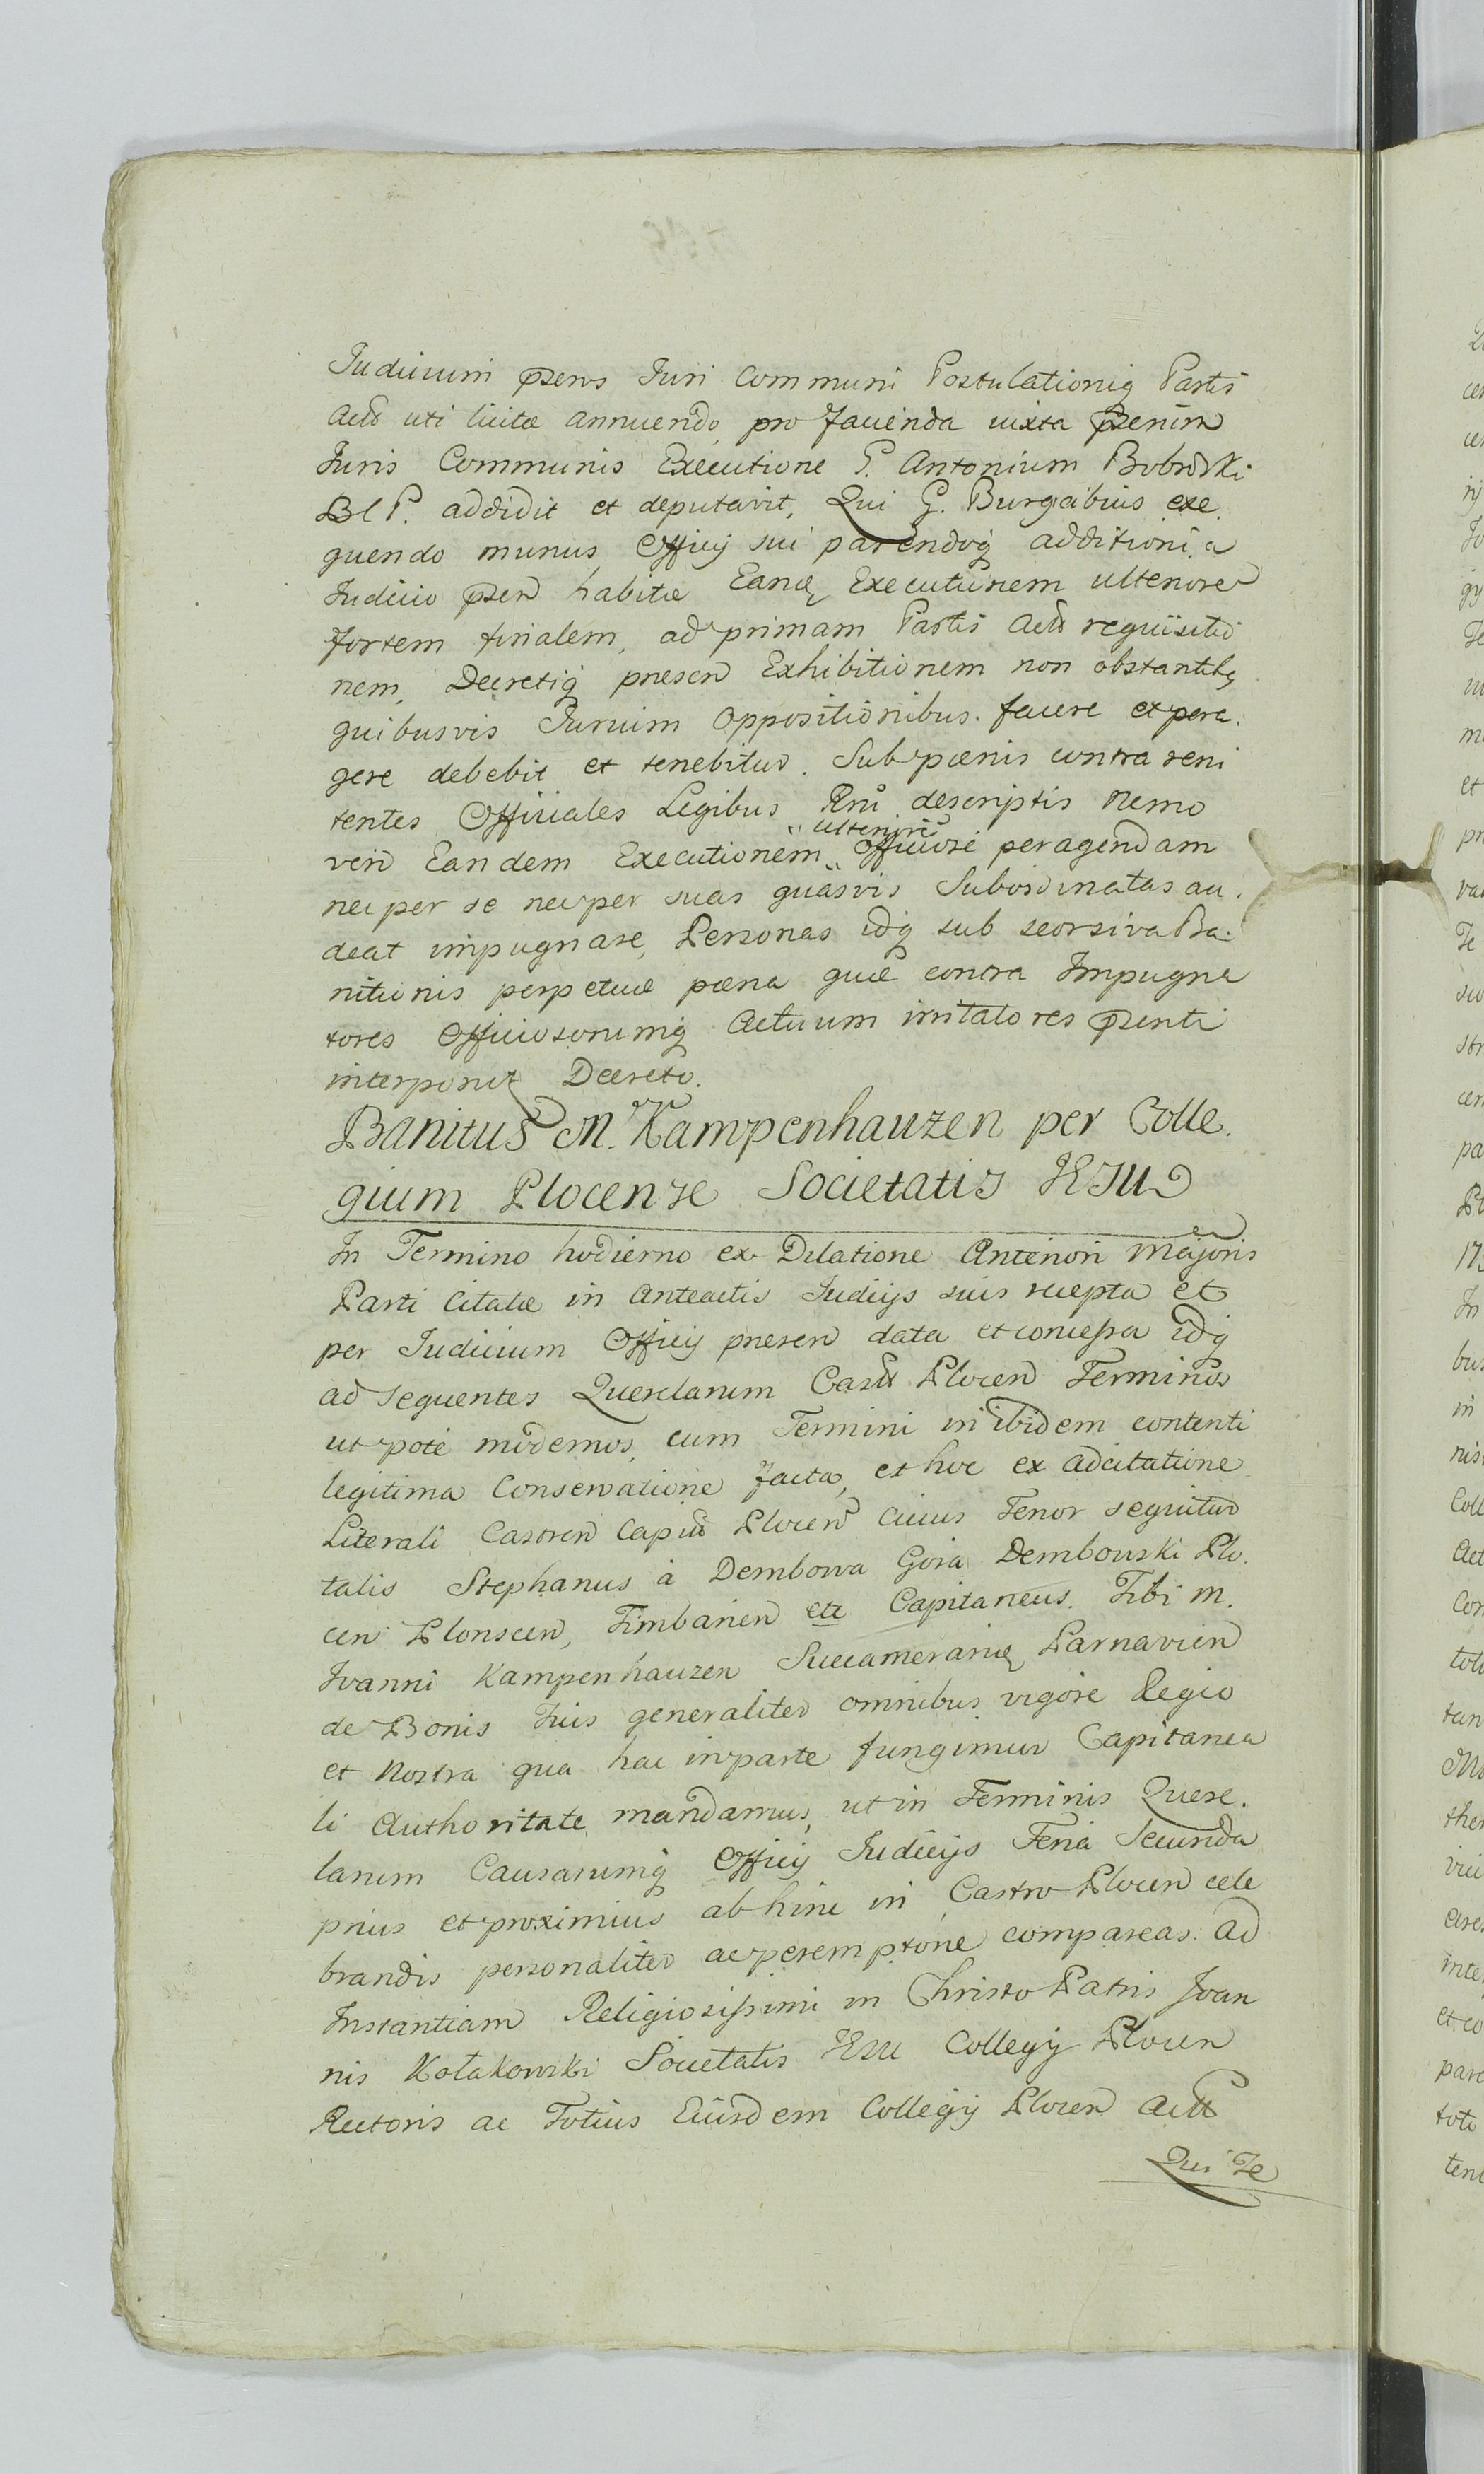 Judicium pzens Juri Communi Postulationiq Partis
Act uti licitæ annuendo, pro facienda iuxta pzenim
Juris Communis Executione G. Antonium Bobrowski
BlP. addidit et deputavit, Qui G. Burgrabius exe.
quendo munus Officij sui parendoq additioni a
Judicio pzen habitæ Eanq Executionem ulteriore
fortem finalem, ad primam Partis Act requisitio
nem, Decretiq presen Exhibitionem non obstantibq
quibusvis Jurium Oppositionibus facere et pera.
gere debebit et tenebitur. Sub pœnis contra reni
tentes Officiales Legibus Rni descriptis Nemo
ulteriore
vero Eandem Executionem Officiose peragendam
nec per se nec per suas quasvis Subordinatas au.
deat impugnare, Personas idq sub seorsiva Ba.
nitionis perpetuæ pœna quæ contra Impugna
tores Officiosorumq Actuum irritatores pzenti
interponit Decreto.
Banitus M. Kampenhauzen per Colle.
gium Plocense Societatis JESU
In Termino hodierno ex Dilatione Anteriori Majoris
Parti Citatæ in anteactis Judicijs suis recepta et
per Judicium Officij presen data et concessa idq
ad sequentes Querelarum Castr Plocen Terminos
utpote modernos, cum Termini in ibidem contenti
legitima Conservatione facta, et hoc ex adcitatione
Literali Castren Capit Plocen cuius Tenor sequitur
talis Stephanus à Dembowa Gora Dembowski Plo.
cen Plonscen, Timbarien etc Capitaneus. Tibi M.
Joanni Kampenhauzen Succamerariq Parnavien
de Bonis Tuis generaliter omnibus vigore Regia
et Nostra qua hac in parte fungimur Capitanea
li Authoritate mandamus, ut in Terminis Quere.
larum Causarumq Officij Judicijs Feria Secunda
prius et proximius abhinc in Castro Plocen cele
brandis personaliter ac peremptorie compareas. Ad
Instantiam Religiosissimi in Christo Patris Joan
nis Kołakowski Societatis JESU Collegij Plocen
Rectoris ac Totius Eiusdem Collegij Plocen Act
Qui Te